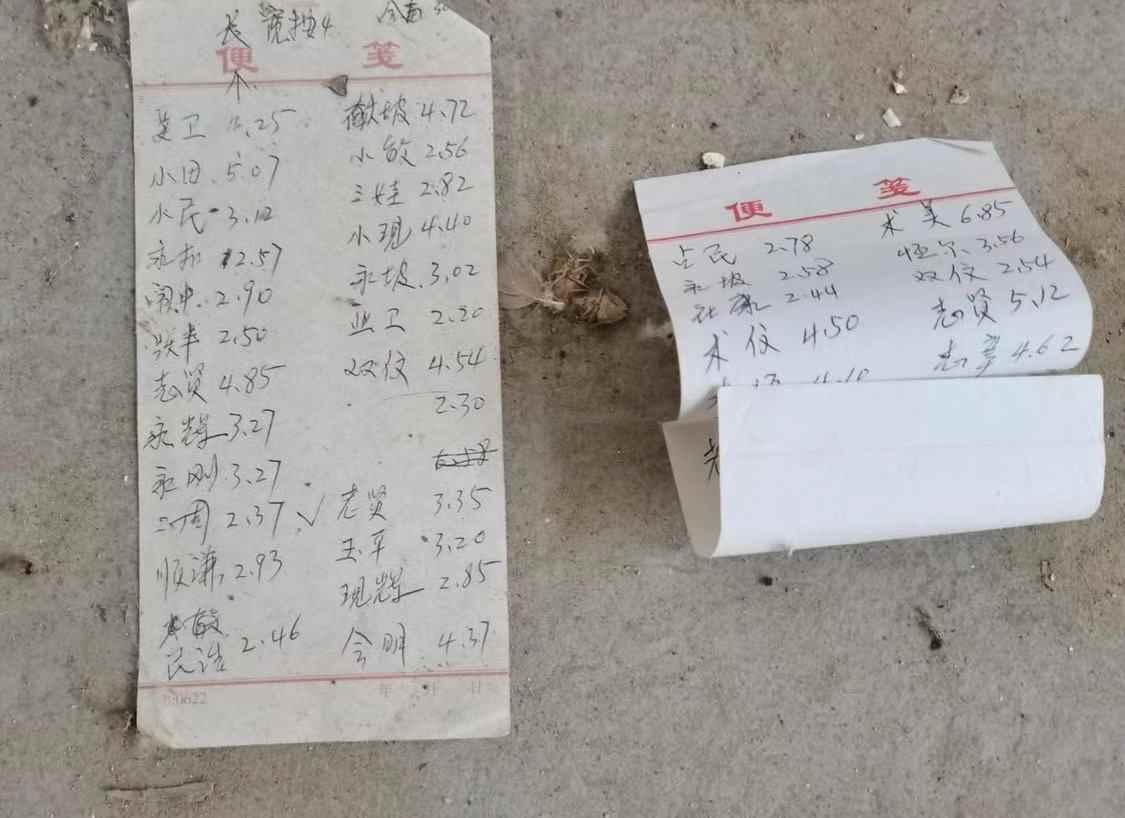 长 宽按4
便 笺
个
亚卫 2.25 献坡 4.72
小田 5.07 小敏 2.56
小民 3.12 三娃 2.82
永扣 2.57 小现 4.40
闹中 2.90 永坡 3.02
铁丰 2.50 亚卫 2.20
志贤 4.85 双仪 4.54
永辉 3.27 2.30
永刚 3.27
三周 2.37 √ 志贤 3.35
顺谦 2.93 玉平 3.20
现辉 2.85
民浩 2.46 会明 4.37
年 月 日
便 笺
占民 2.78 术美 6.85
永坡 2.58 恒尔 3.56
2.44 双仪 2.54
术仪 4.50 志贤 5.12
4.62